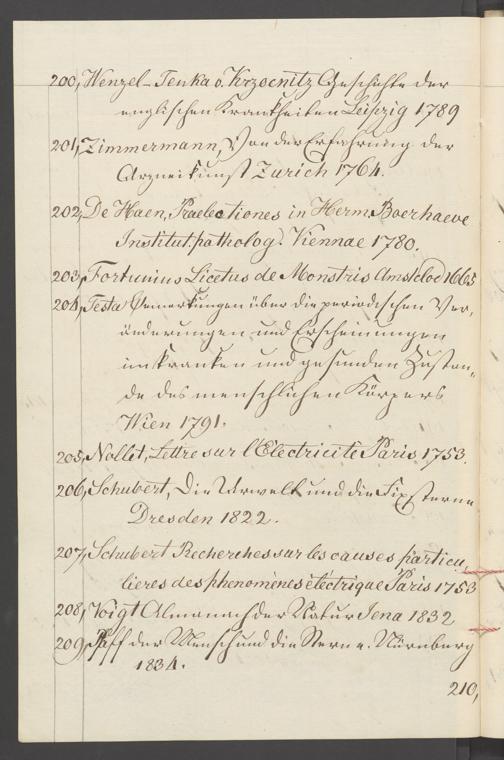 200, Wenzel-Tenka v. Krzoenitz Geschichte der
englischen Krankheiten Leipzig 1789
201, Zimmermann, Von der Erfahrung der
Arzneikunst Zurich 1764.
202, De Haen, Praelectiones in Herm. Boerhaeve
Institut: patholog: Viennae 1780.
203, Fortunius Licetus de Monstris Amstelod 1665
204, Testa Bemerkungen über die periodischen Ver,
änderungen und Erscheinungen
im kranken und gesunden Zustan,,
de des menschlichen Körpers
Wien 1791.
205, Nollet, Lettre sur l'Electricité Paris 1753.
206, Schubert, Die Urwelt und die Fixsterne
Dresden 1822.
207, Schubert Recherches sur les causes particu,
lieres des phenomènes éléctrique Paris 1753
208, Voigt Almanach der Natur Jena 1832
209, Pfaff der Mensch und die Sterne. Nürnberg
1834.
210,